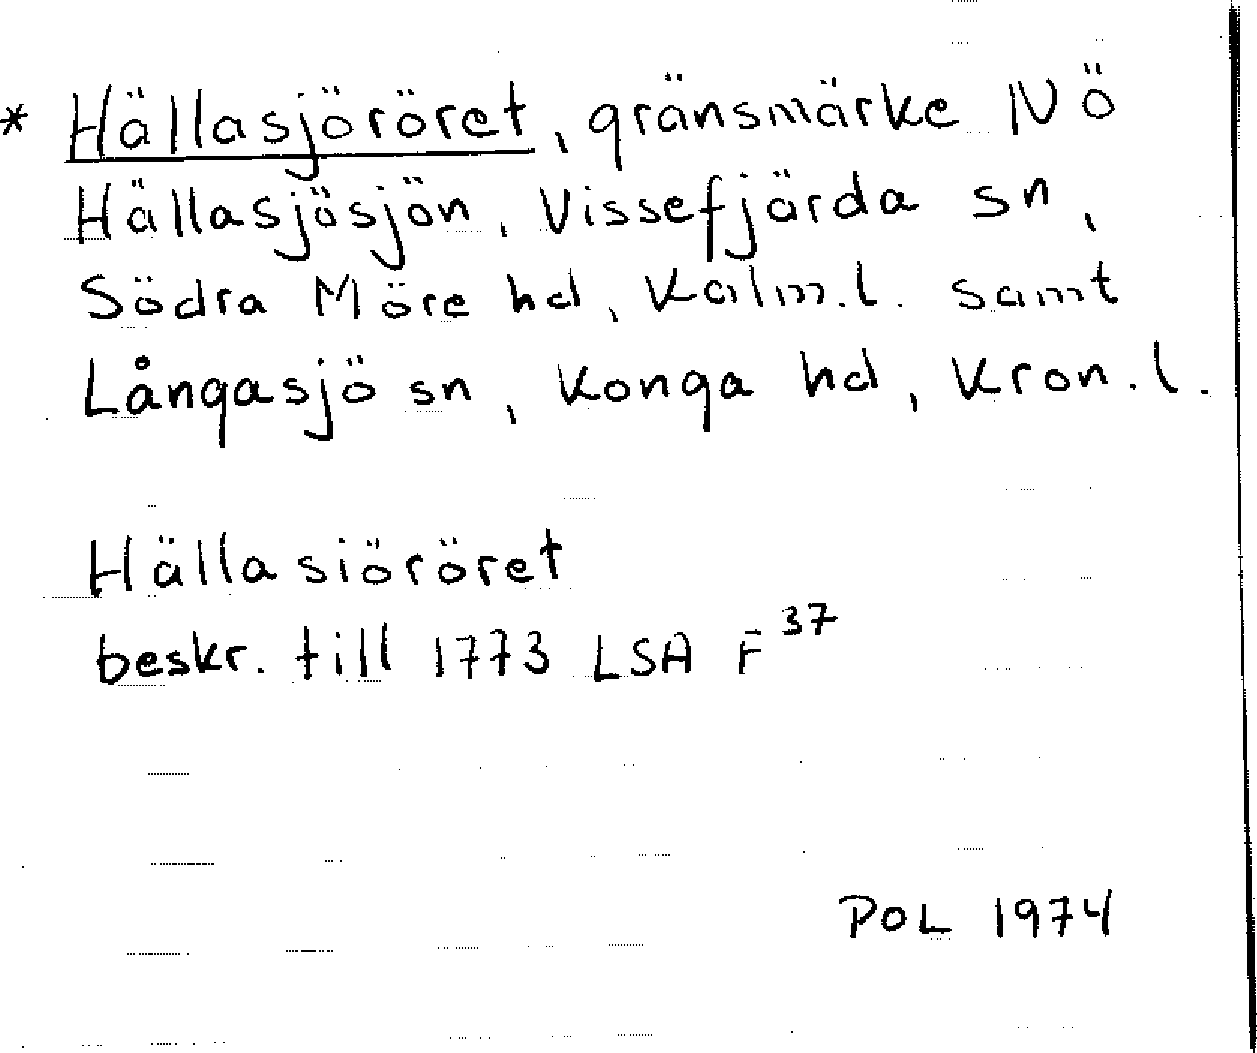 * Hällasjöröret, gränsmärke NÖ
Hällasjösjön, Vissefjärda sn,
Södra Möre hd, Kalm.l. samt
Långasjö sn, Konga hd, Kron.l.
Hällasiöröret
beskr. till 1773 LSA F³⁷
POL 1974